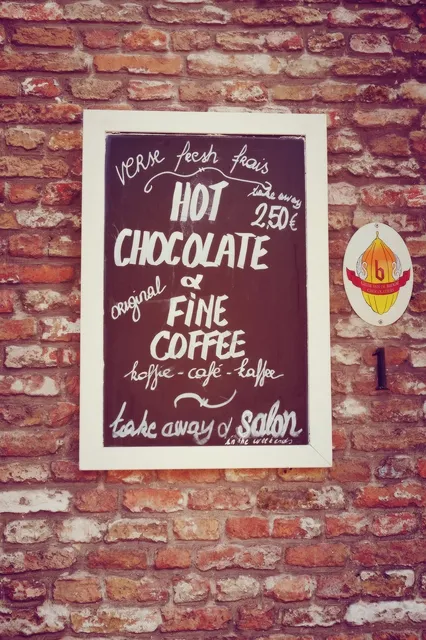 verse fresh frais
HOT
take away
2,50€
CHOCOLATE
&
original
FiNE
COFFEE
koffie - café - kaffee
take away & salon
in the weekends
b
1